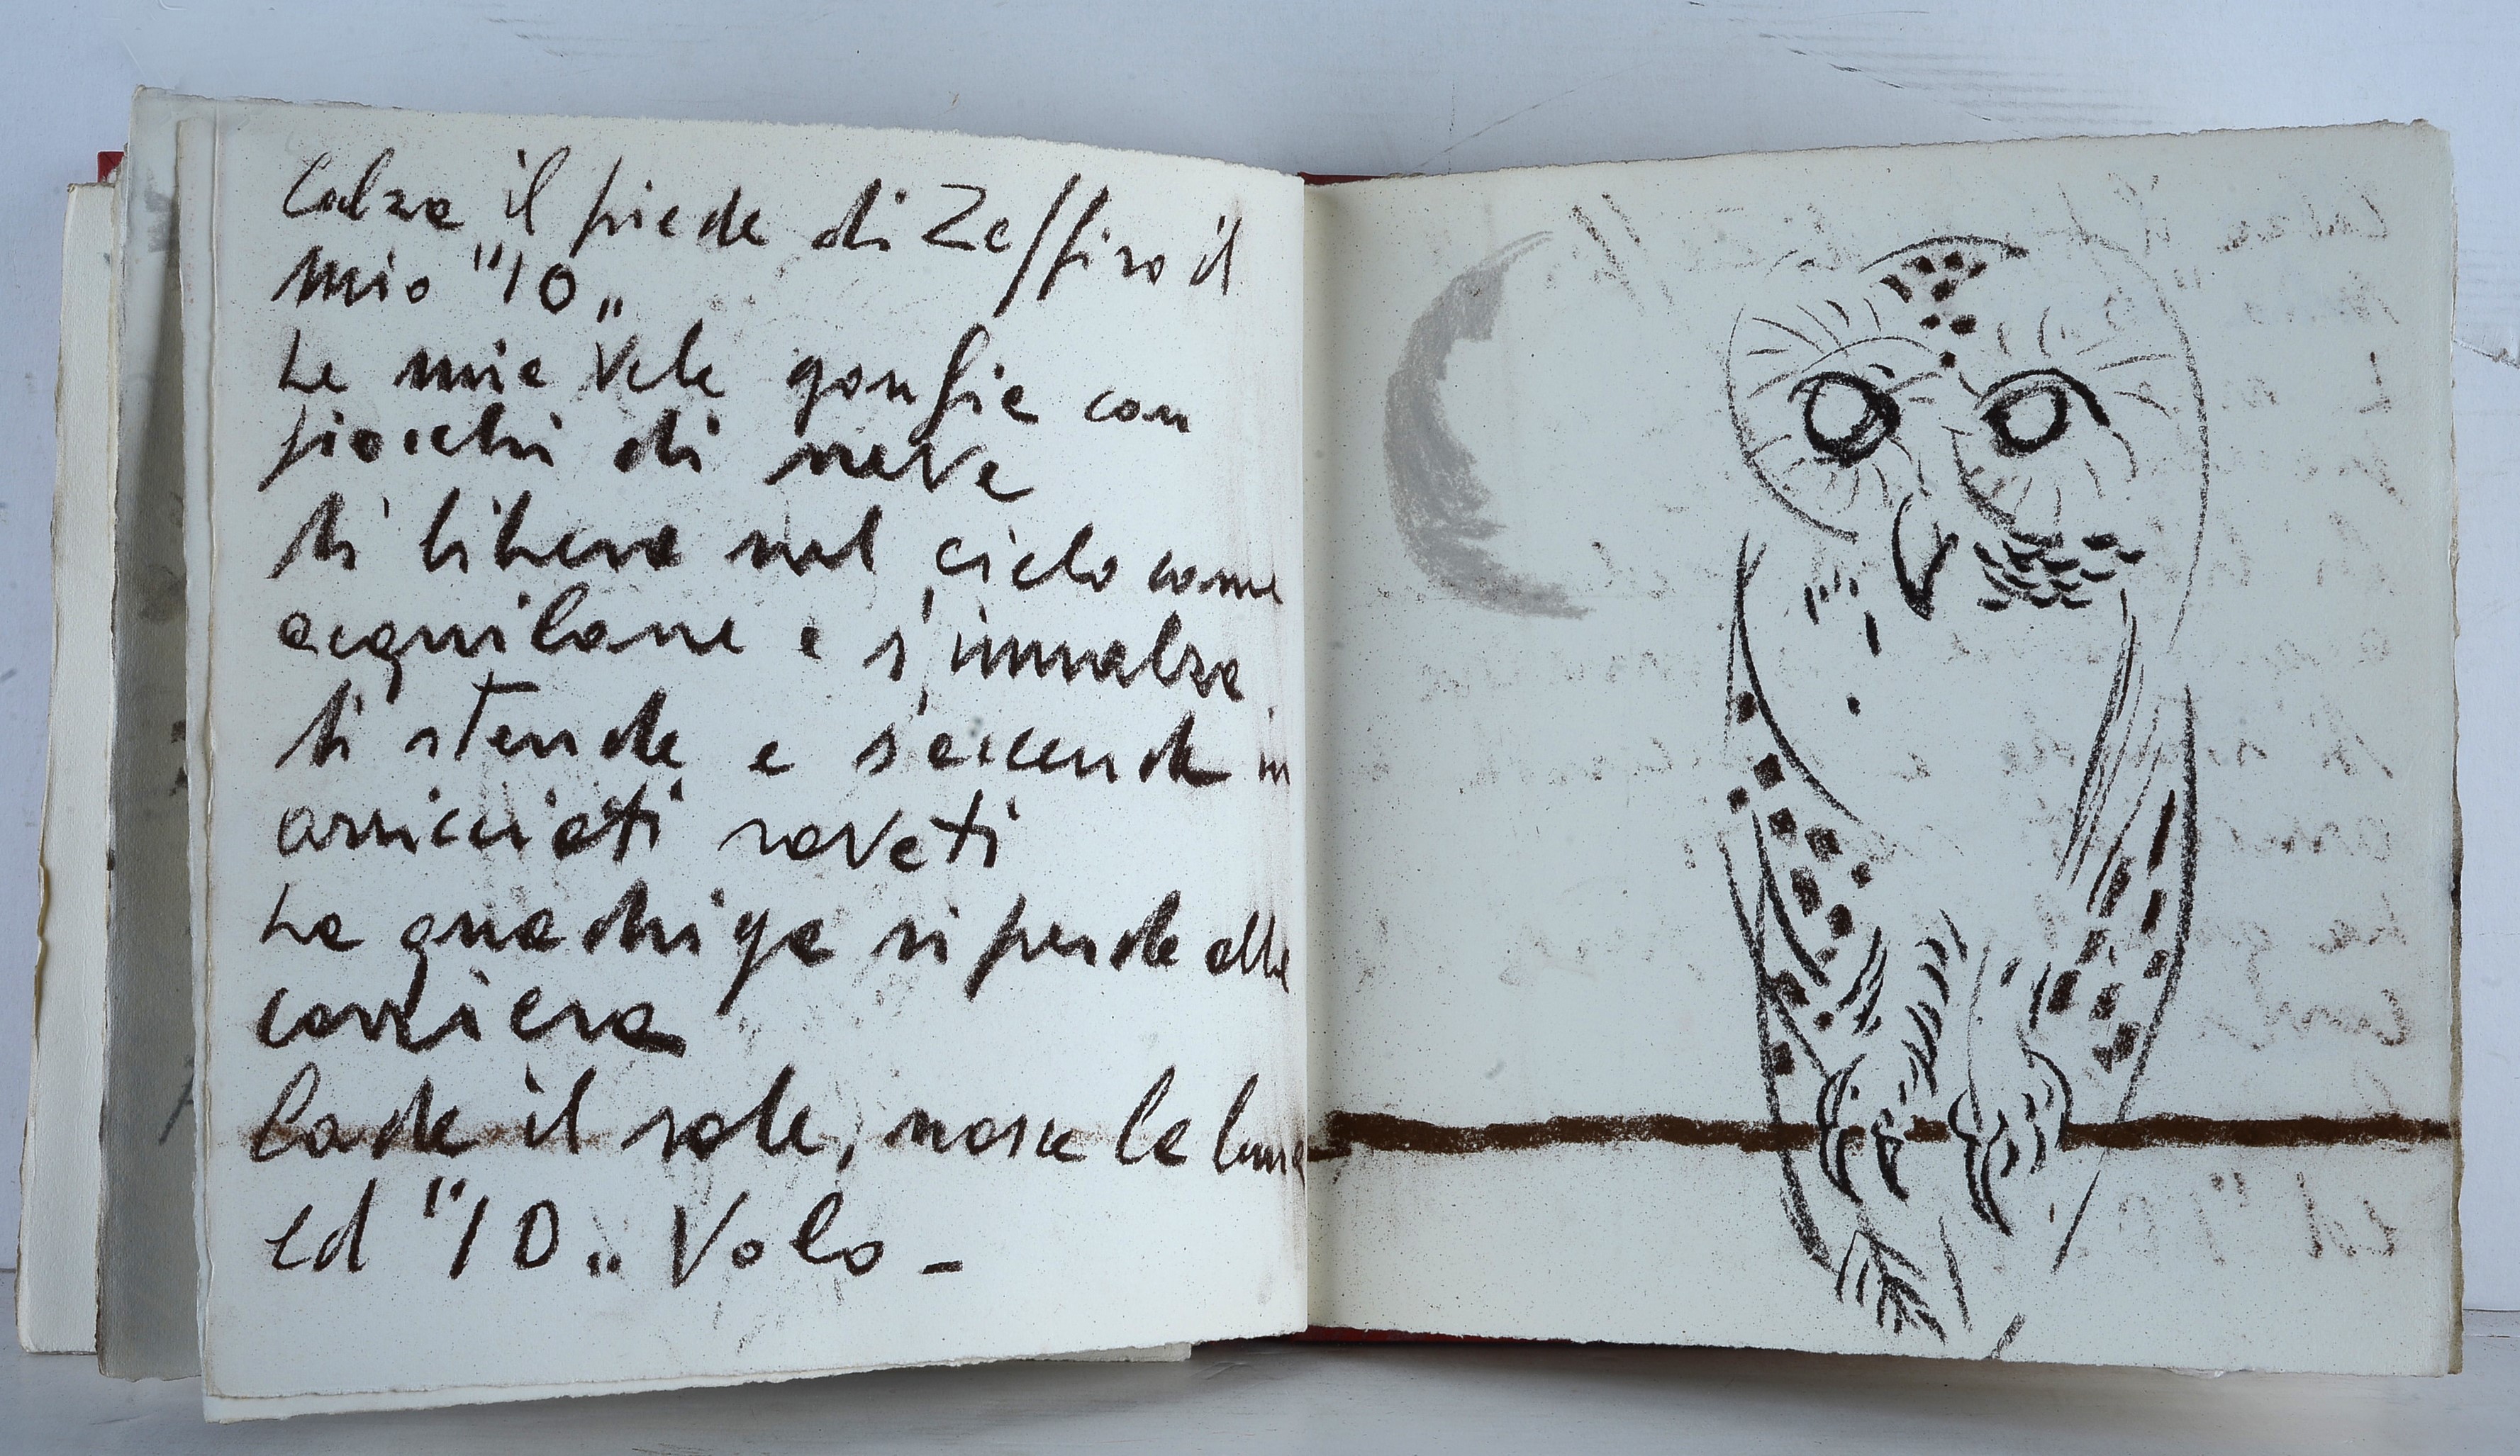 Calza il piede di Zeffiro il
mio "IO"
Le mie Vele gonfie con
fiocchi di neve
si libera nel cielo come
acquilone e s'innalza
si stende e s'accende in
arricciati roveti
La quadriga si perde alla
corriera
Cade il sole, nasce la luna
ed "IO" Volo -